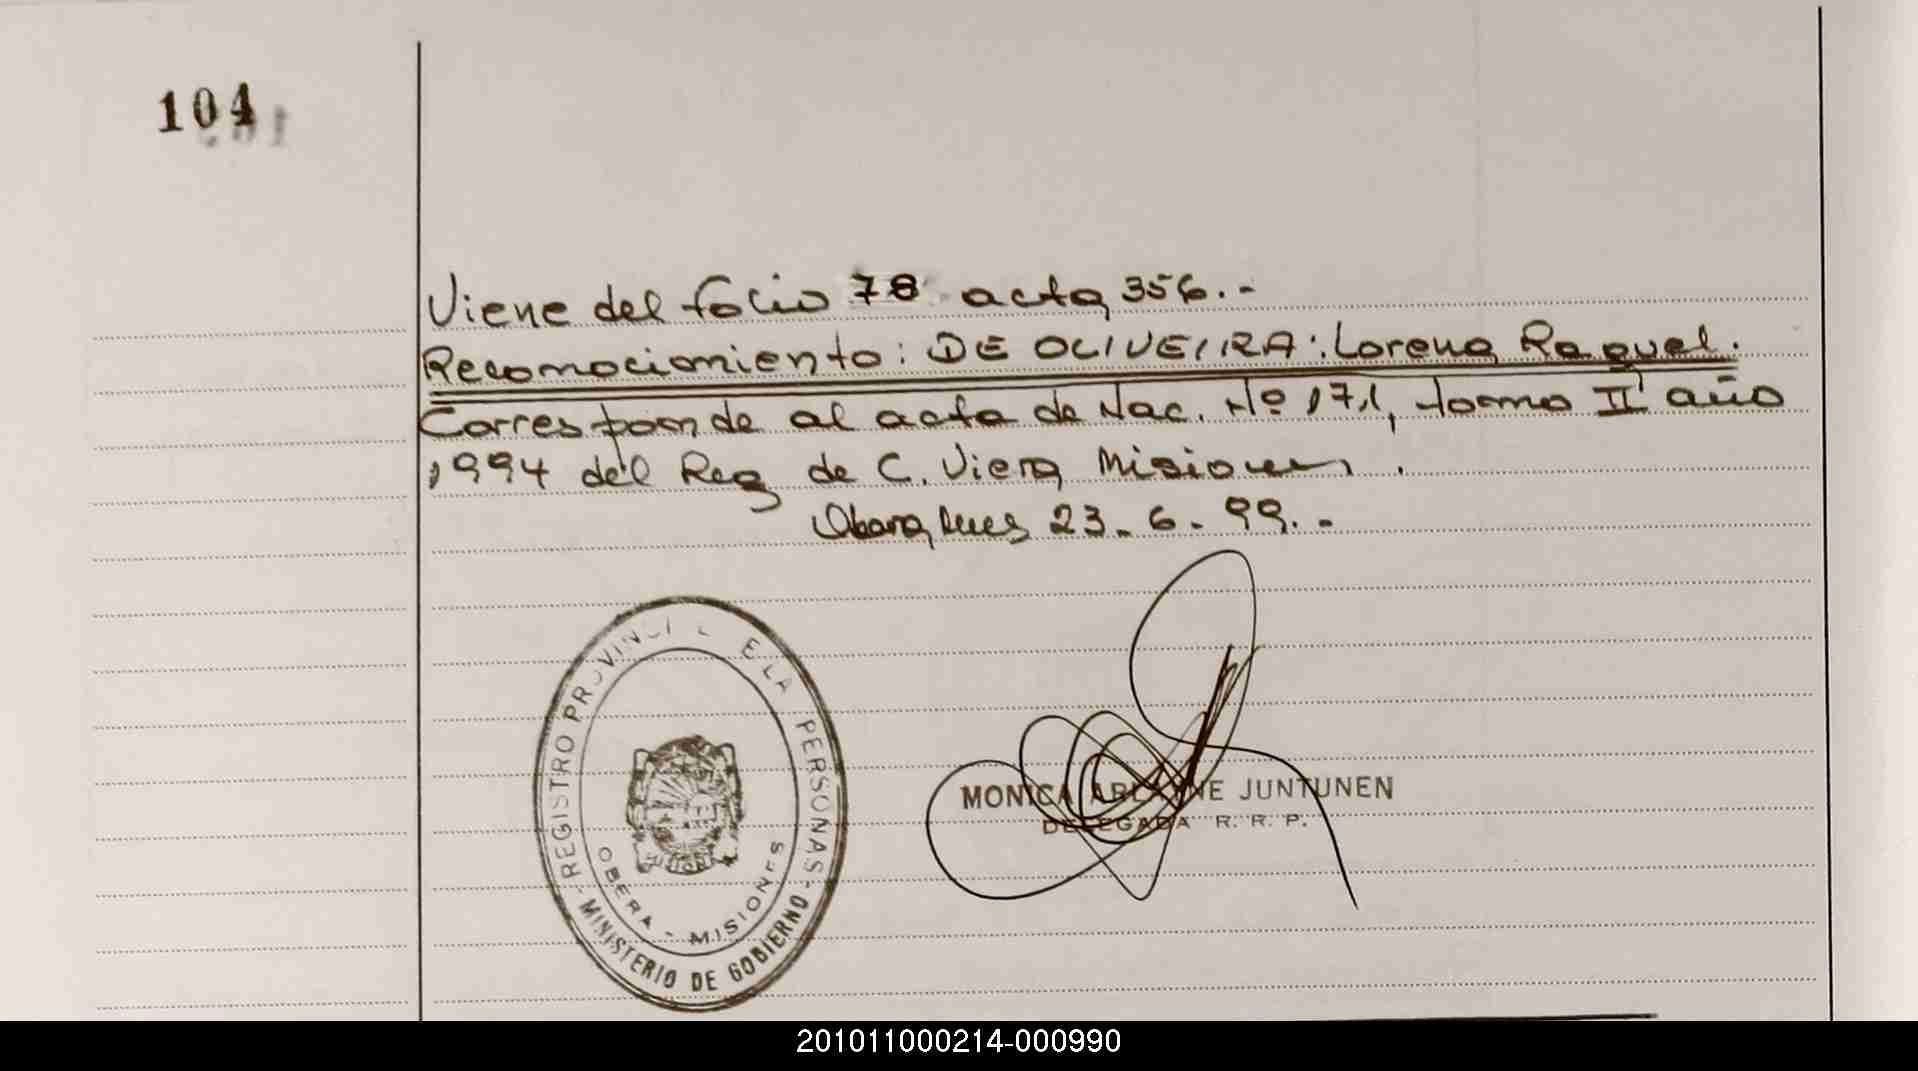 104
Viene del folio 78 acta 356.-
Reconocimiento: DE OLIVEIRA: Lorena Raquel.
Corresponde al acta de Nac. Nº 171, tomo II año
1994 del Reg de C. Viera Misiones.
23-6-99.-
REGISTRO PROVINCI L E LA PERSONAS
OBERA - MISIONES
- MINISTERIO DE GOBIERNO -
MONICA ARLAYNE JUNTUNEN
DELEGADA R. R. P.
201011000214-000990